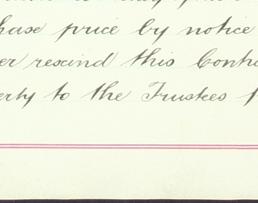 hase price by notice
er rescind this Contra
erty to the Trustees f